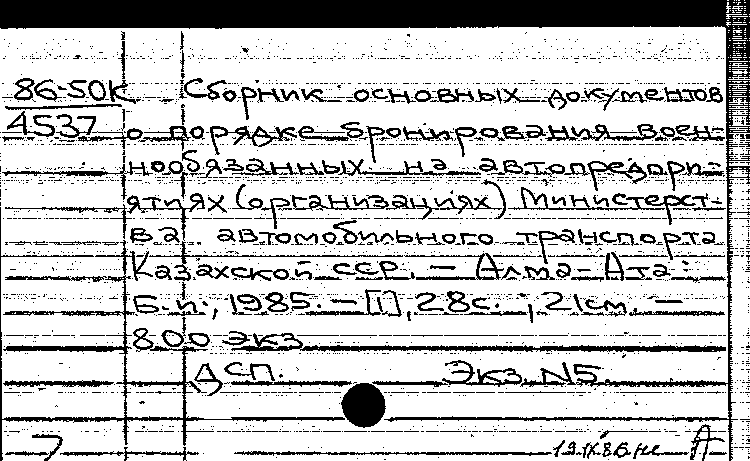 86-50К Сборник основных документов
4537 о порядке бронирования воен-
нообязанных на автопредпри-
ятиях (организациях) Министерст-
ва автомобильного транспорта
Казахской ССР. — Алма-Ата:
Б.и., 1985. — [1], 28с. ; 21см. —
800 экз
ДСП. Экз. N5.
19.IX.86